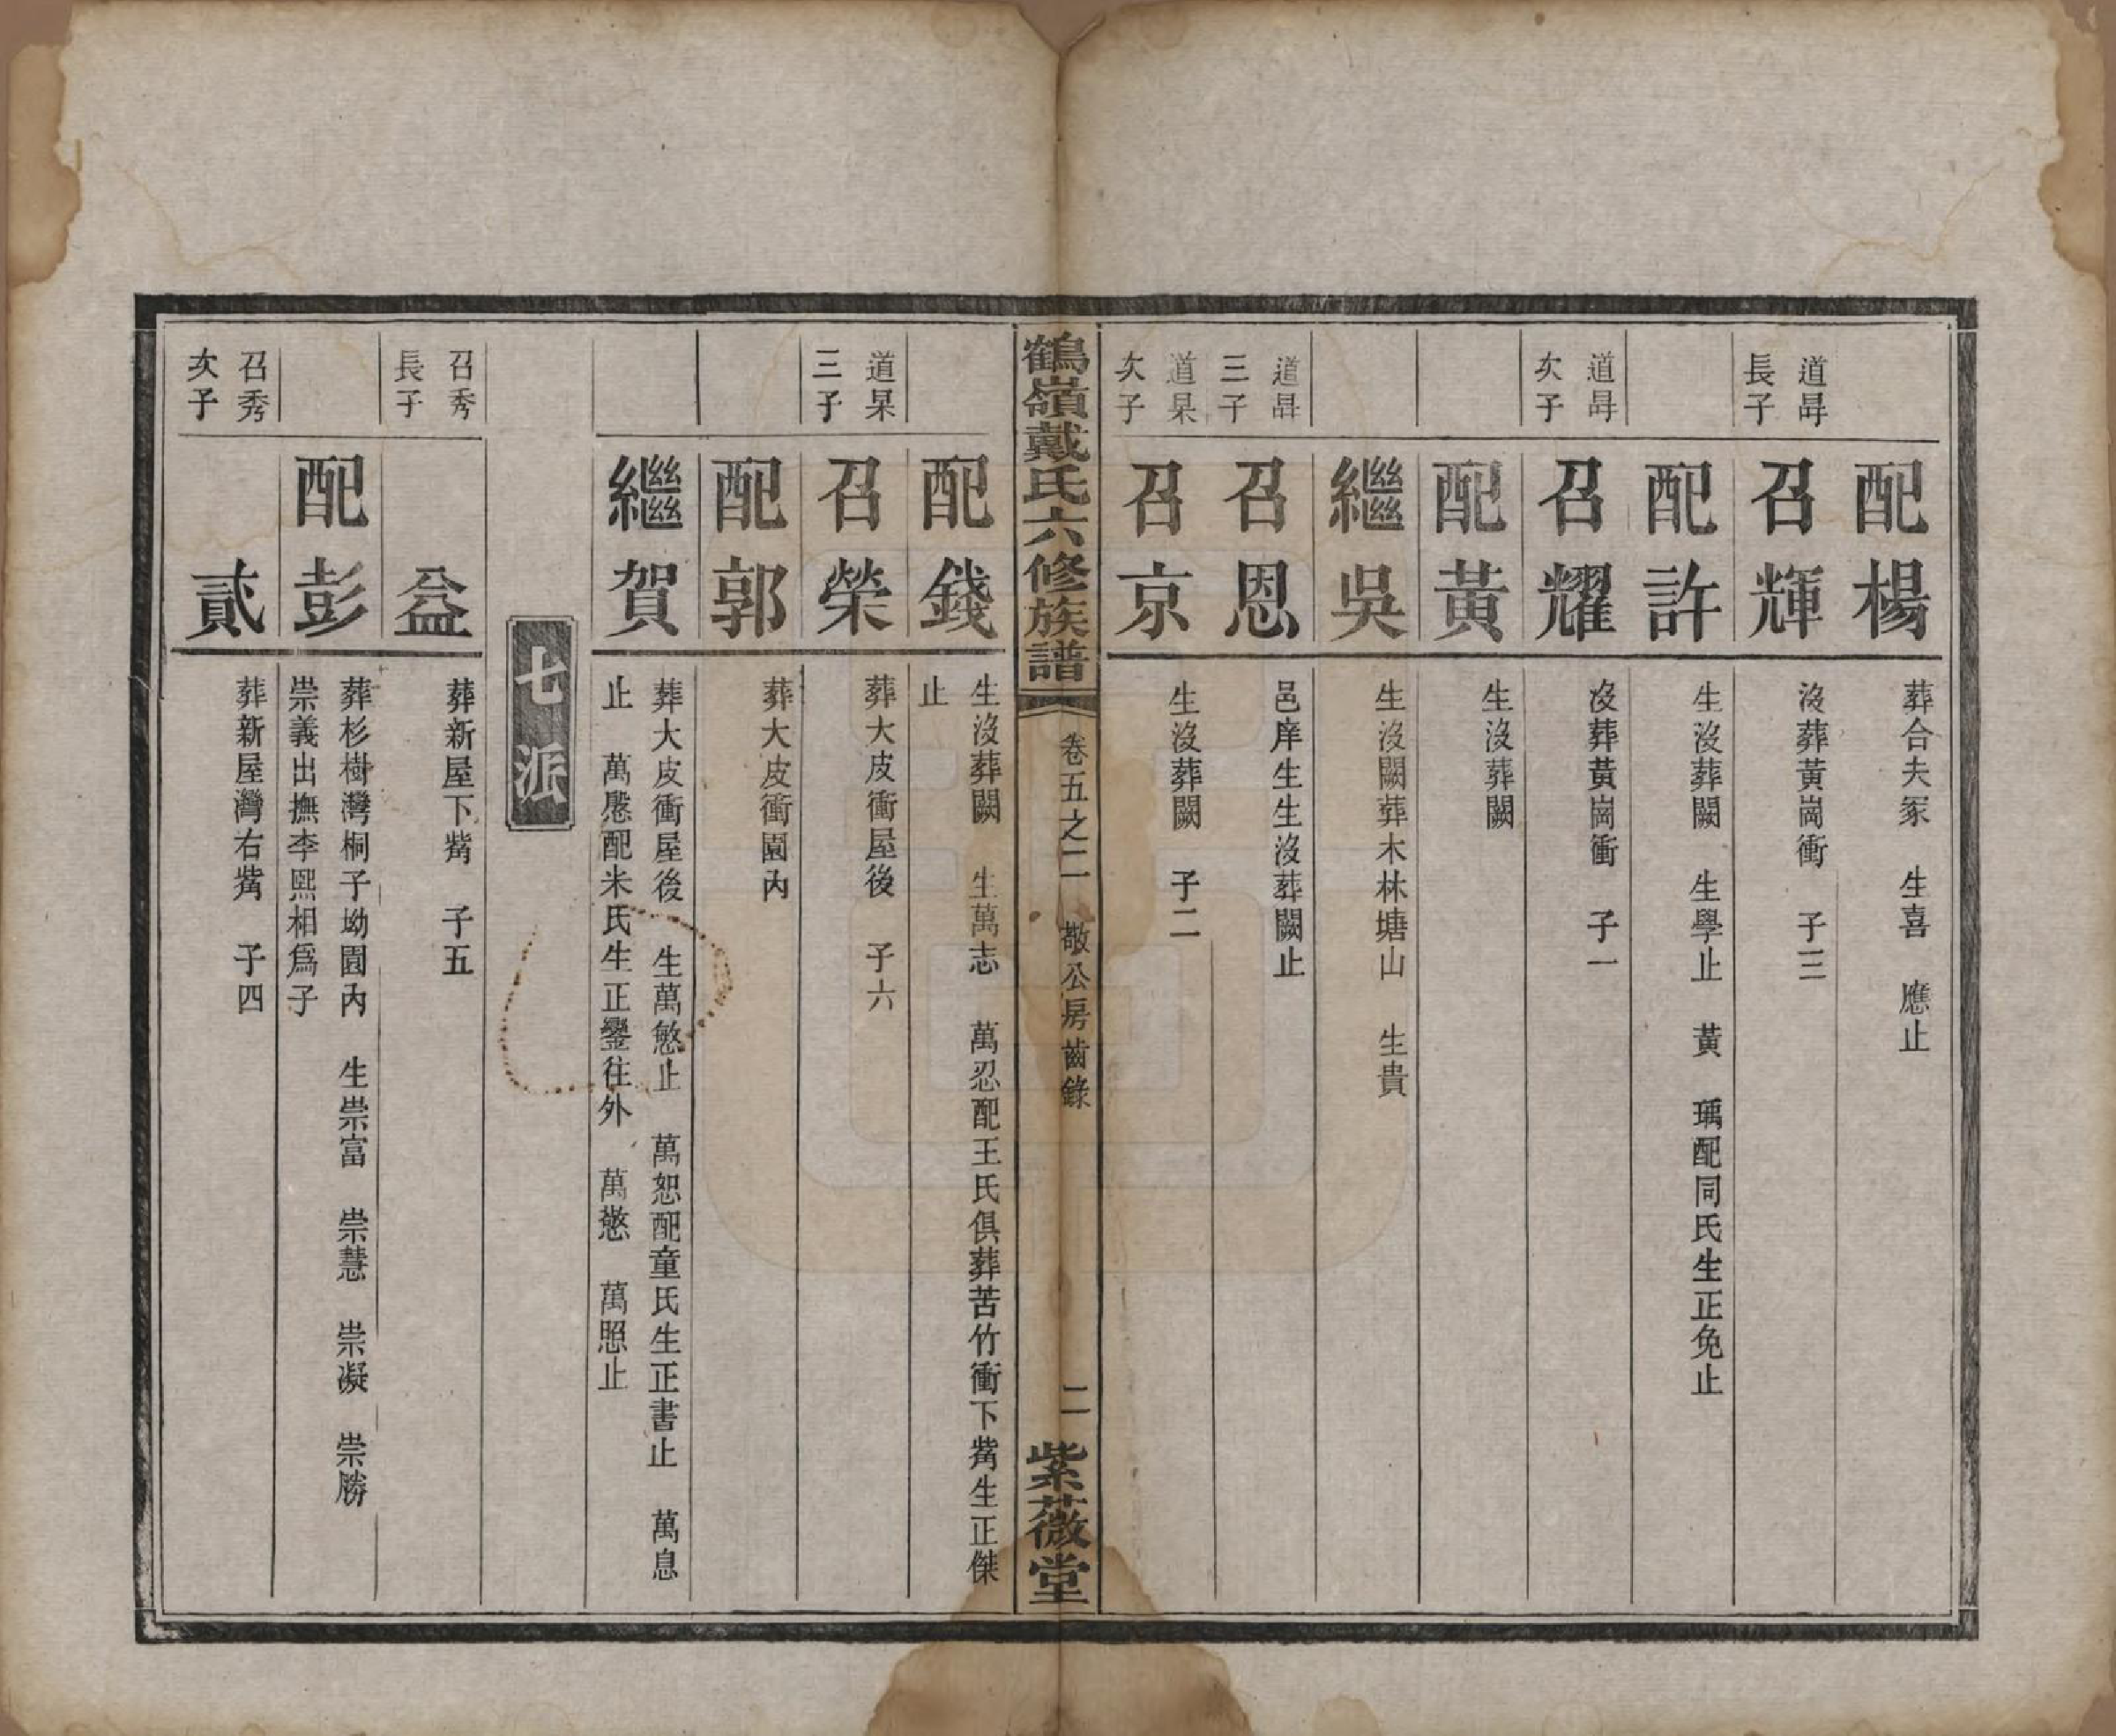 配楊
葬合夫冢　生喜　應止
道㝵長子
召輝
沒葬黃崗衝　子三
配許
生沒葬闕　生學止　黃　瑀配同氏生正免止
道㝵次子
召耀
沒葬黃崗衝　子一
配黃
生沒葬闕
繼吳
生沒闕葬木林塘山　生貴
道㝵三子
召恩
邑庠生生沒葬闕止
道杲次子
召京
生沒葬闕　子二
鶴嶺戴氏六修族譜
卷五之二　敬公房齒錄
二
紫薇堂
配錢
生沒葬闕　生萬志　萬忍配王氏俱葬苦竹衝下觜生正傑
止
道杲三子
召榮
葬大皮衝屋後　子六
配郭
葬大皮衝園內
繼賀
葬大皮衝屋後　生萬慜止　萬恕配童氏生正書止　萬息
止　萬慇配米氏生正鑾往外　萬憖　萬照止
七派
召秀長子
益
葬新屋下觜　子五
配彭
葬杉樹灣桐子坳園內　生崇富　崇慧　崇凝　崇勝
崇義出撫李熙相為子
召秀次子
貳
葬新屋灣右觜　子四